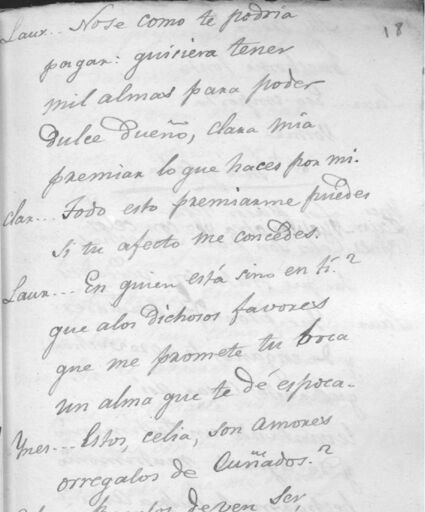 18
Laur... Nose como te podria
pagar: quisiera tener
mil almas para poder
dulce dueño, clara mia
premiar lo que haces por mi.
Clar... Todo esto premiarme puedes
si tu afecto me concedes.
Laur... En quien está sino en ti?
que alos dichosos favores
que me promete tu boca
un alma que te dé es poca.
Ynes... Estos, celia, son amores
orregalos de Cuñados?
deven ser,